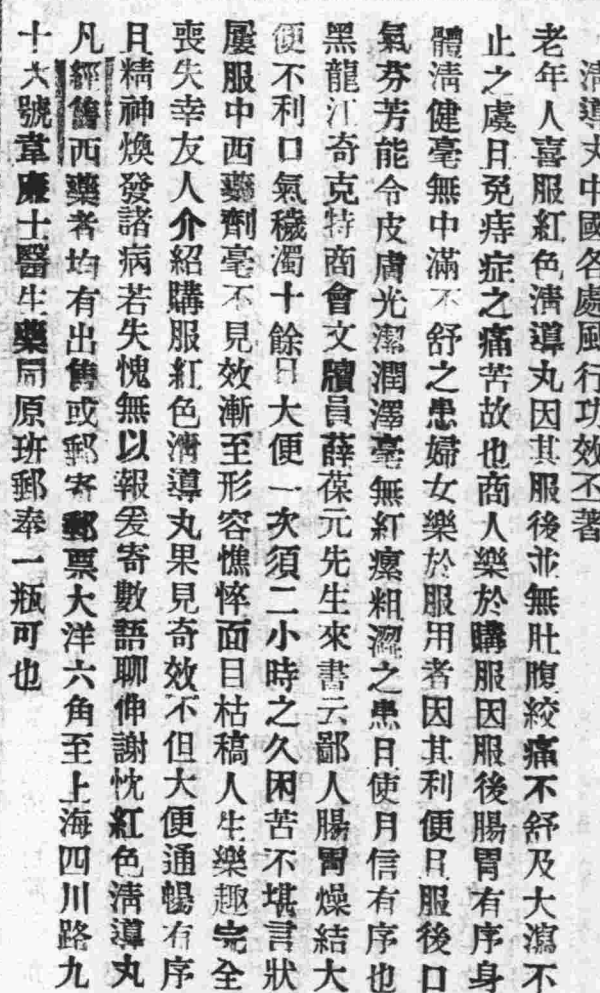 清導丸中國各處風行功效丕著
老年人喜服紅色清導丸因其服後並無肚腹絞痛不舒及大瀉不
止之虞且免痔症之痛苦故也商人樂於購服因服後腸胃有序身
體清健毫無中滿不舒之患婦女樂於服用者因其利便且服後口
氣芬芳能令皮膚光潔潤澤毫無紅瘰粗澀之患且使月信有序也
黑龍江奇克特商會文牘員薛葆元先生來書云鄙人腸胃燥結大
便不利口氣穢濁十餘日大便一次須二小時之久困苦不堪言狀
屢服中西藥劑毫不見效漸至形容憔悴面目枯稿人生樂趣完全
喪失幸友人介紹購服紅色清導丸果見奇效不但大便通暢有序
且精神煥發諸病若失愧無以報爰寄數語聊伸謝忱紅色清導丸
凡經售西藥者均有出售或郵寄郵票大洋六角至上海四川路九
十六號韋廉士醫生藥局原班郵奉一瓶可也